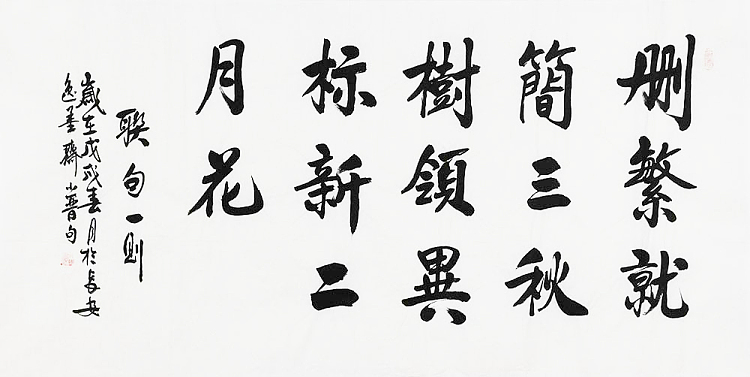 删繁就
簡三秋
樹領異
标新二
月花
聯句一則
歲在戊戌春月於長安
墨齋